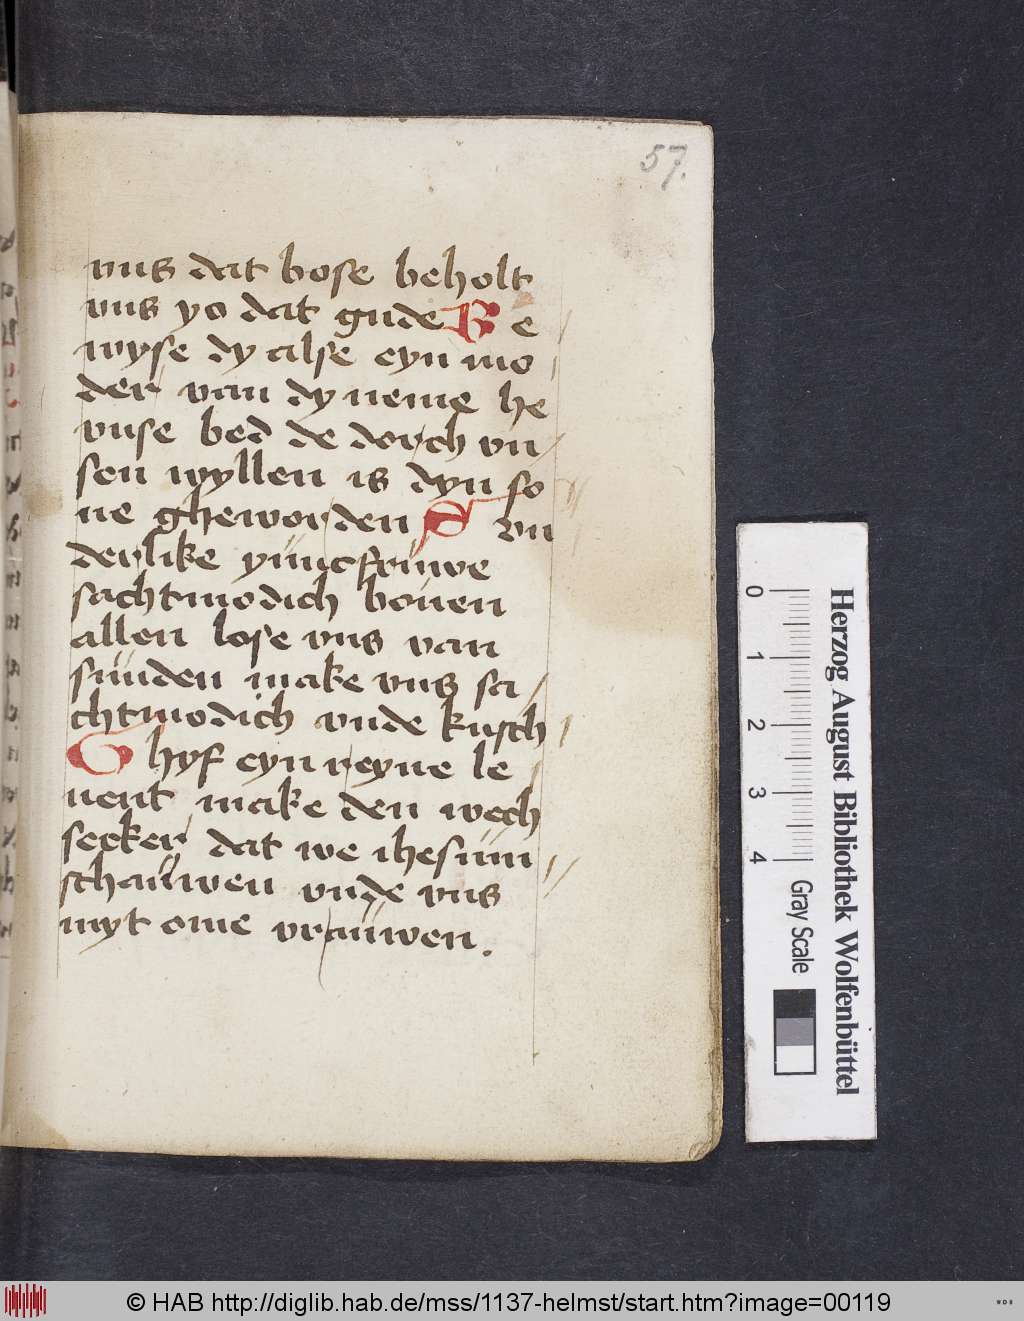 57.
vns dat bose beholt
vns yo dat gude B e
wyse dy alse eyn mo
der van dyneme he
vnse bed de dorch vn
sen wyllen is dyn so
ne gheworden S vn
derlike yüncfrüwe
sachtmodich bouen
allen lose vns van
sünden make vns sa
chtmodich vnde kusch
G hyf eyn reyne le
uent make den wech
seeker dat we ihesüm
schaüwen vnde vns
myt ome vraüwen.
0 1 2 3 4
Gray Scale
Herzog August Bibliothek Wolfenbüttel
© HAB http://diglib.hab.de/mss/1137-helmst/start.htm?image=00119